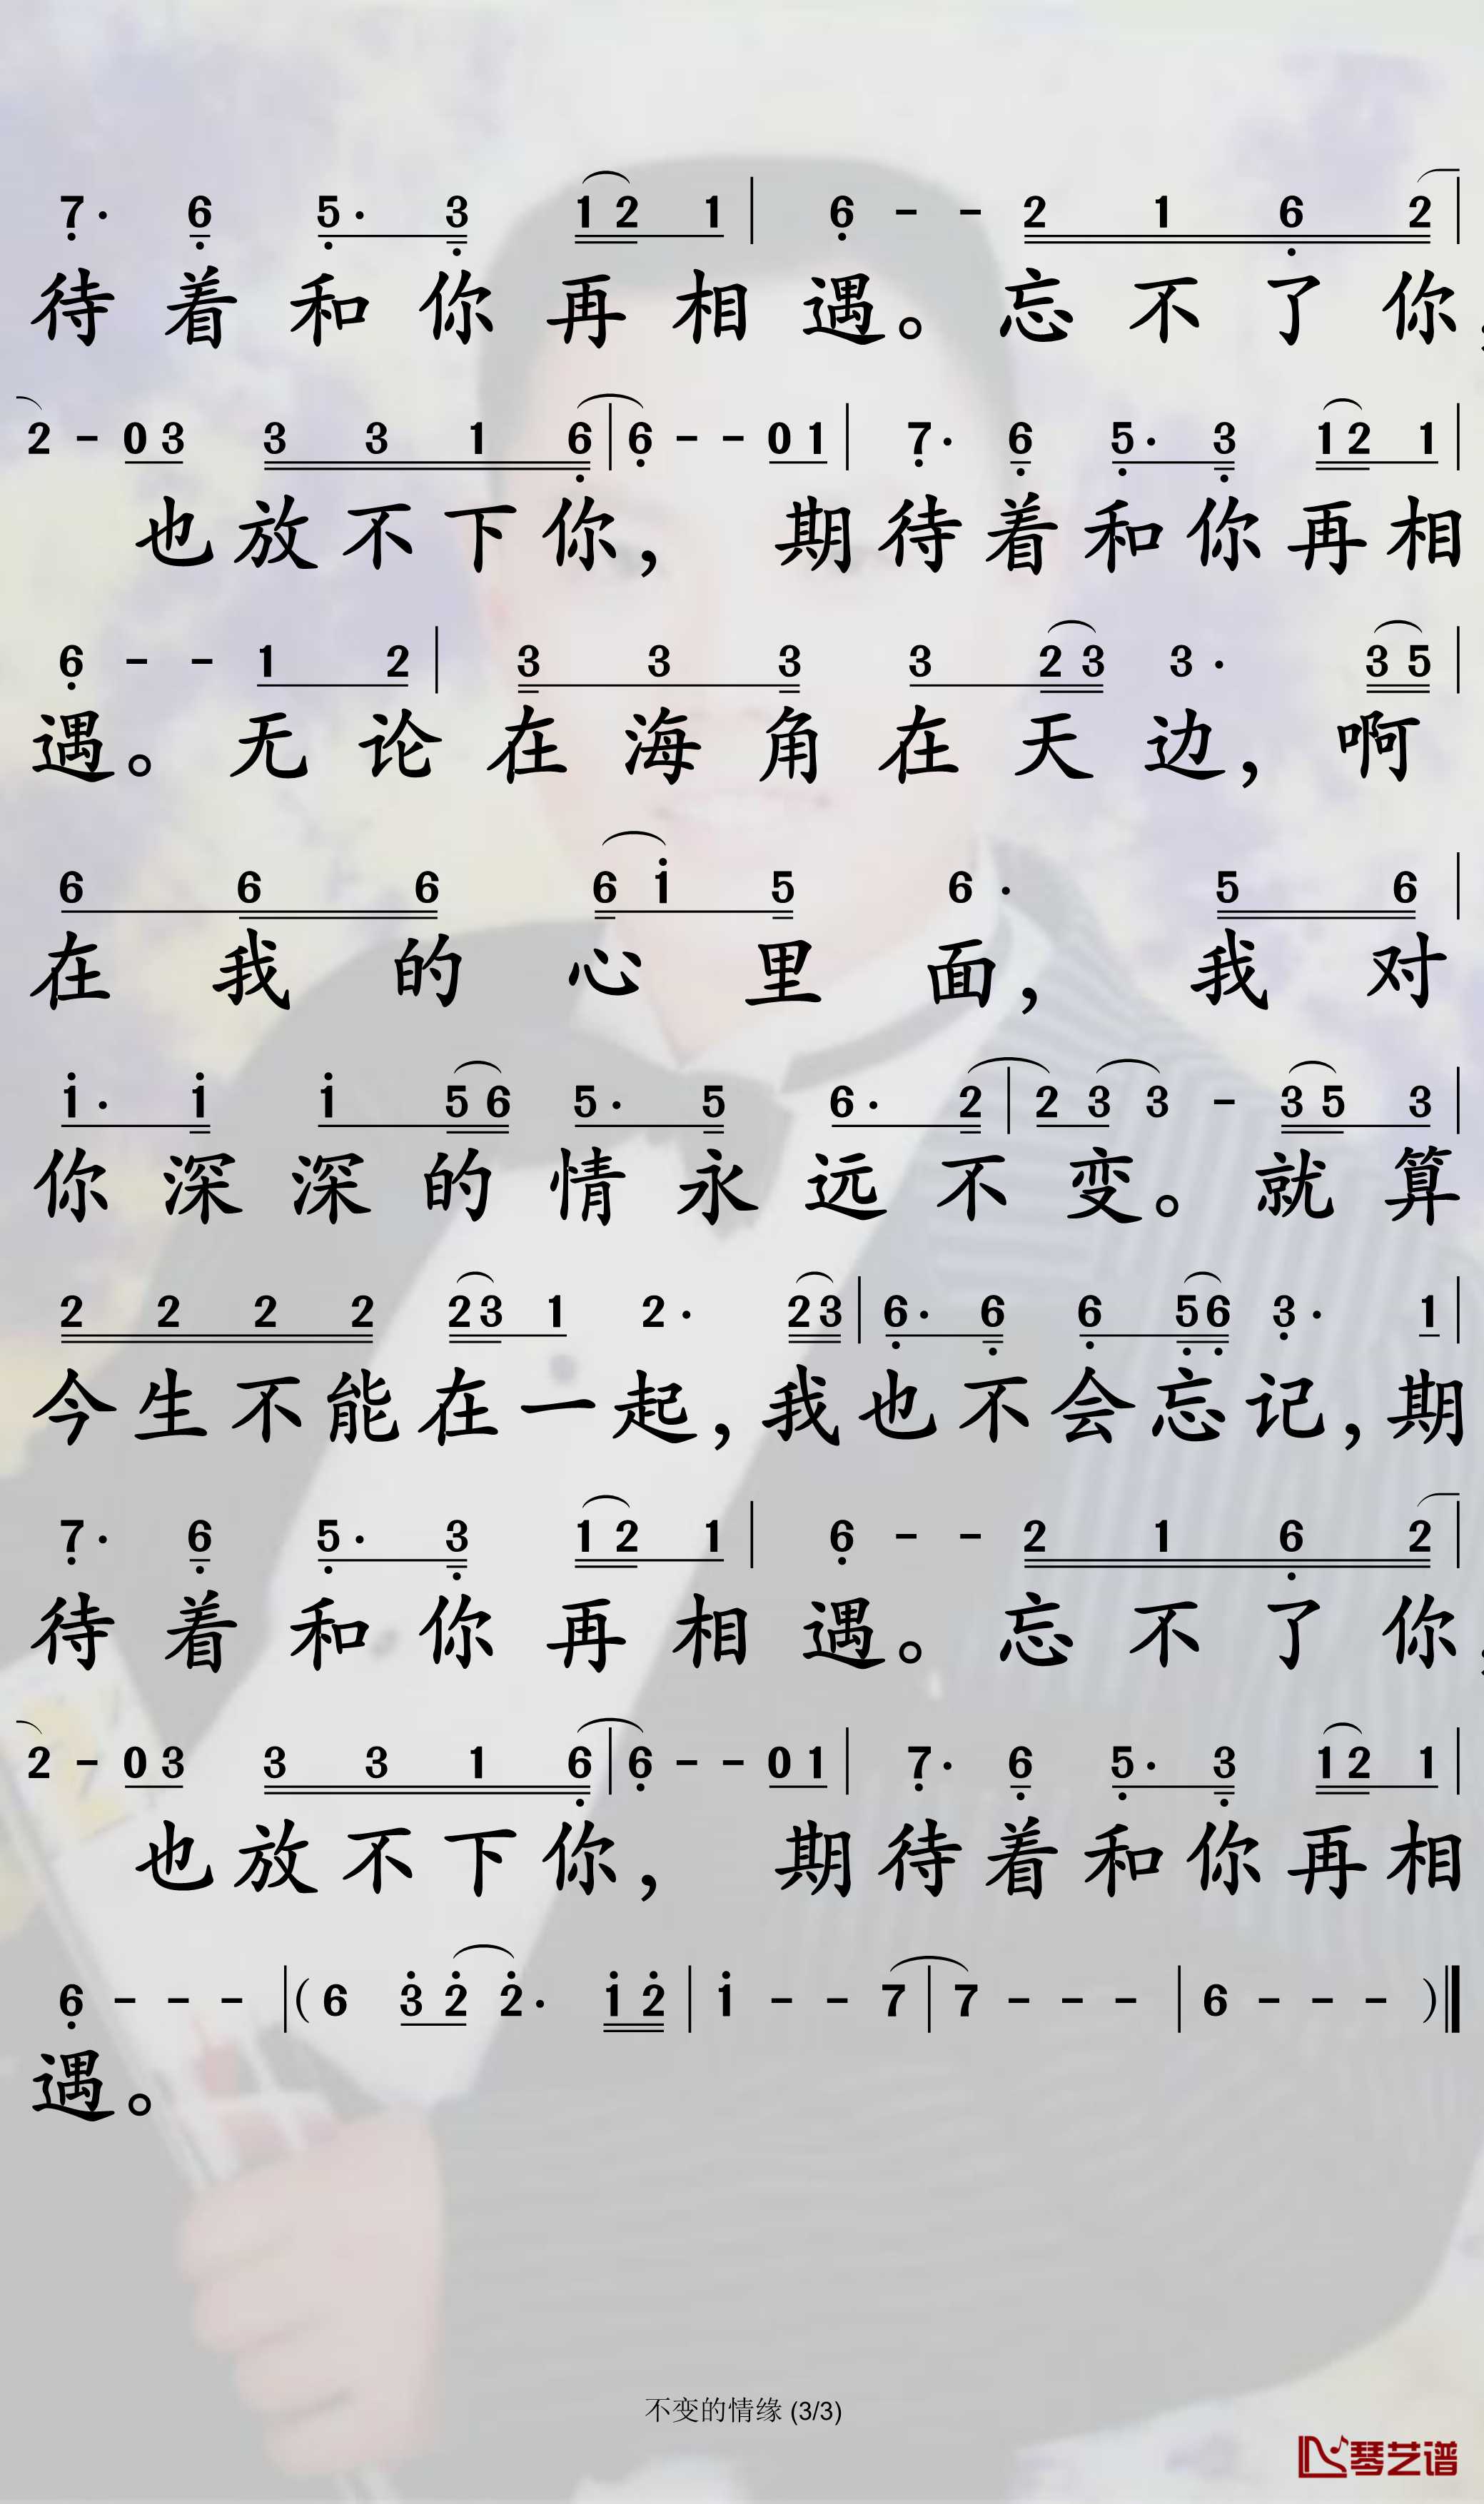 7. 6 5. 3 1 2 1 | 6 - - 2 1 6 2 |
待着和你再相遇。忘不了你,
2 - 0 3 3 3 1 6 | 6 - - 0 1 | 7. 6 5. 3 1 2 1 |
也放不下你, 期待着和你再相
6 - - 1 2 | 3 3 3 3 2 3 3. 3 5 |
遇。无论在海角在天边, 啊
6 6 6 6 1 5 6. 5 6 |
在我的心里面, 我对
1. 1 1 5 6 5. 5 6. 2 | 2 3 3 - 3 5 3 |
你深深的情永远不变。就算
2 2 2 2 2 3 1 2. 2 3 | 6. 6 6 5 6 3. 1 |
今生不能在一起, 我也不会忘记, 期
7. 6 5. 3 1 2 1 | 6 - - 2 1 6 2 |
待着和你再相遇。忘不了你,
2 - 0 3 3 3 1 6 | 6 - - 0 1 | 7. 6 5. 3 1 2 1 |
也放不下你, 期待着和你再相
6 - - - | ( 6 3 2 2. 1 2 | 1 - - 7 | 7 - - - | 6 - - - ) ‖
遇。
不变的情缘 (3/3)
琴艺谱